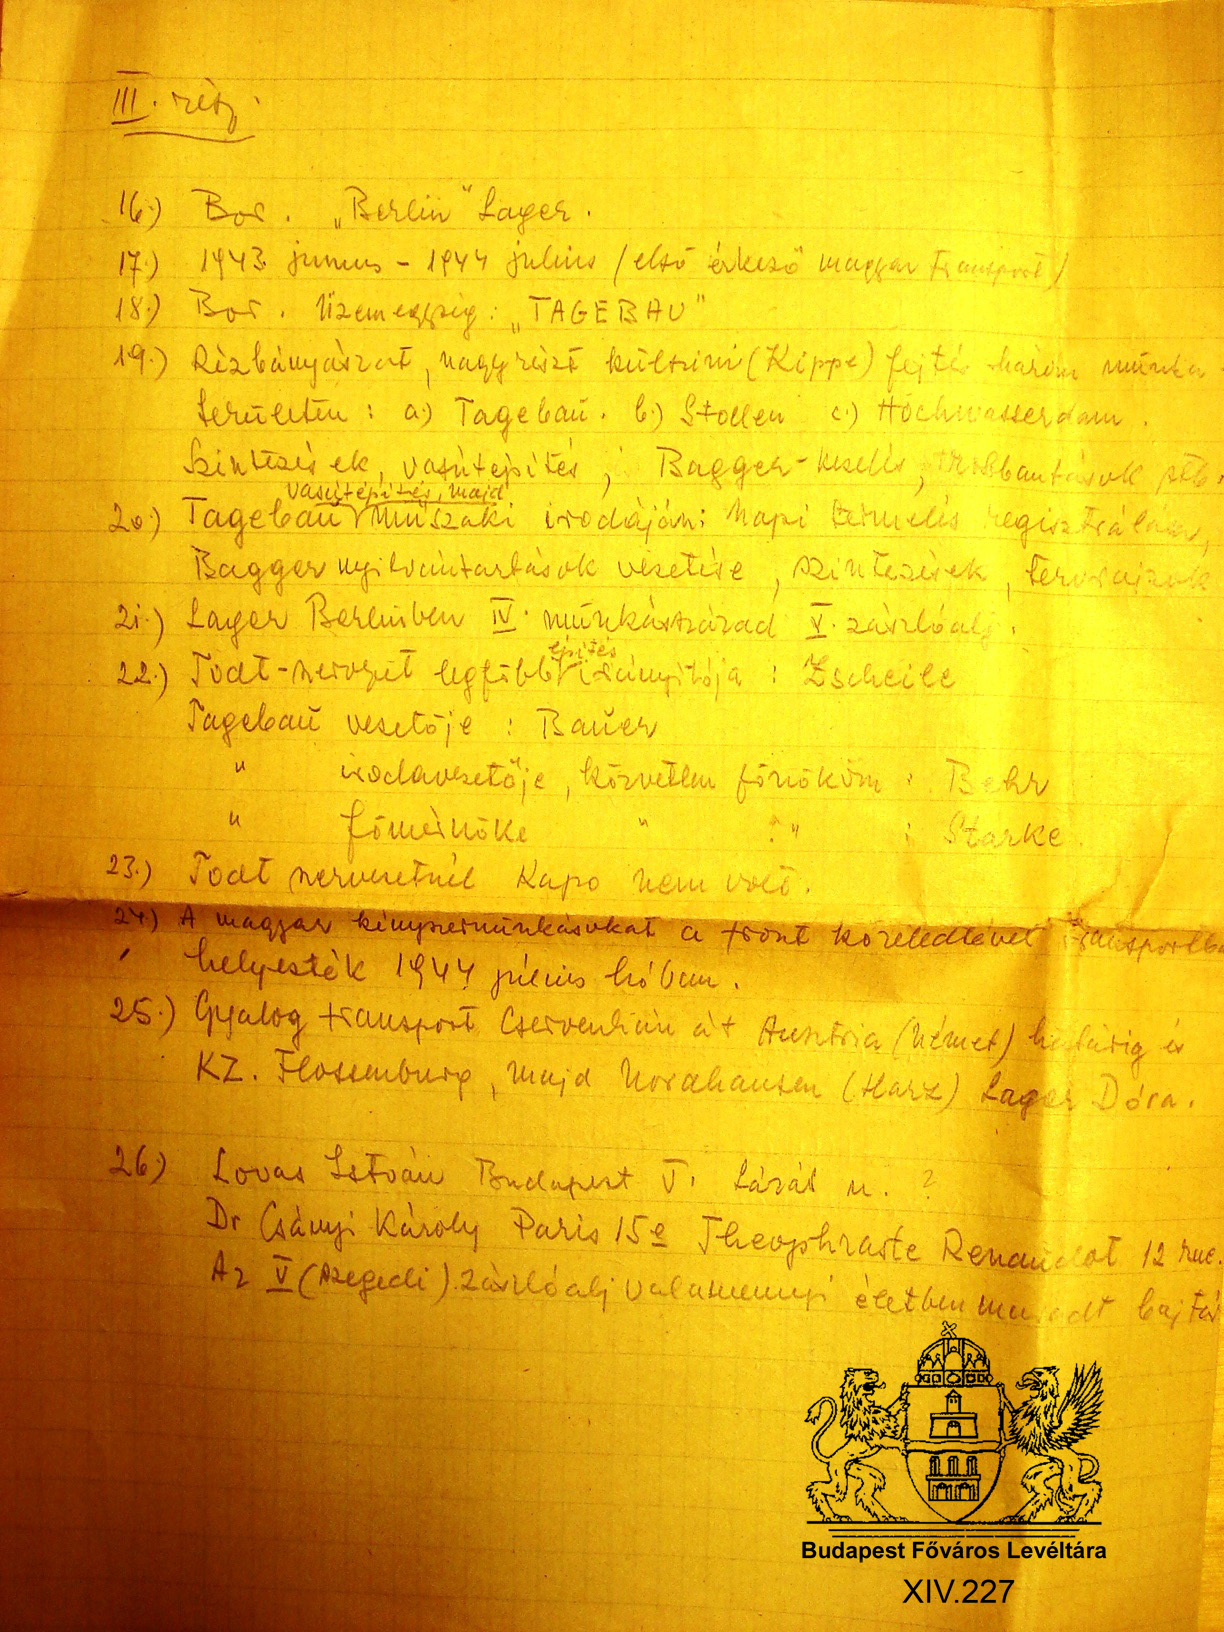 III. rész.
16.) Bor. „Berlin" Lager.
17.) 1943 junius - 1944 julius (első érkező magyar transport)
18.) Bor. Üzemegység: „TAGEBAU"
19.) Rézbányászat, nagyrészt kültszini (Kippe) fejtés három munka-
területen: a.) Tagebau. b.) Stollen c.) Hochwasserdam.
Szintezések, vasútépités, Bagger-kezelés, robbantások stb.
vasútépités, majd
20.) Tagebau műszaki irodáján: Napi termelés regisztrálása,
Bagger nyilvántartások vezetése, szintezések, tervrajzok
21.) Lager Berlinben IV. munkásszázad V. zászlóalj.
épités
22.) Todt-szervezet legfőbb irányitója: Zscheile
Tagebau vezetője: Bauer
" irodavezetője, közvetlen főnököm: Behr
" főmérnöke " " : Starke.
23.) Todt szervezetnél Kapo nem volt.
24.) A magyar kényszermunkásokat a front közeledtével transportba
helyezték 1944 julius hóban.
25.) Gyalog transport Cservenkán át Ausztria (német) határig és
KZ. Flossenburg, majd Nordhausen (Harz) Lager Dóra.
26.) Lovas István Budapest V. Lázár u. ?
Dr Csányi Károly Paris 15e Theophraste Renaudot 12 rue.
Az V (szegedi) zászlóalj valamennyi életben maradt bajtár
Budapest Főváros Levéltára
XIV.227